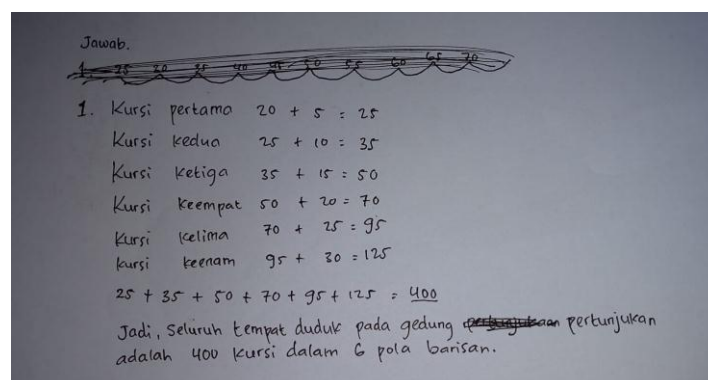 Jawab.
1. 25 30 35 40 45 50 55 60 65 70
1. Kursi pertama 20 + 5 = 25
Kursi kedua 25 + 10 = 35
Kursi ketiga 35 + 15 = 50
Kursi keempat 50 + 20 = 70
Kursi kelima 70 + 25 = 95
kursi keenam 95 + 30 = 125
25 + 35 + 50 + 70 + 95 + 125 = 400
Jadi, Seluruh tempat duduk pada gedung pertunjukan
adalah 400 kursi dalam 6 pola barisan.